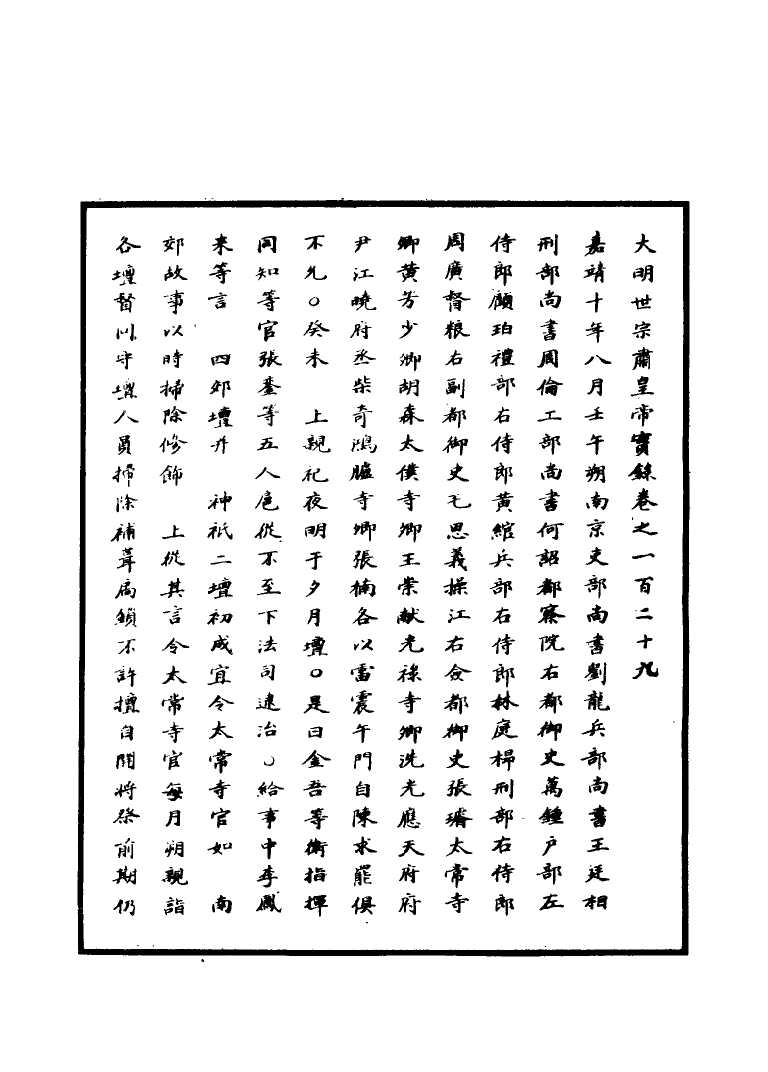 大明世宗肅皇帝實錄卷之一百二十九
嘉靖十年八月壬午朔南京吏部尚書劉龍兵部尚書王廷相
刑部尚書周倫工部尚書何詔都察院右都御史萬鏜戶部左
侍郎顧珀禮部右侍郎黃綰兵部右侍郎林庭㭿刑部右侍郎
周廣督粮右副都御史毛思義操江右僉都御史張璿太常寺
卿黃芳少卿胡森太僕寺卿王崇献光祿寺卿洗光應天府府
尹江曉府丞柴奇鴻臚寺卿張楠各以雷震午門自陳求罷俱
不允○癸未　上親祀夜明于夕月壇○是日金吾等衛指揮
同知等官張鏊等五人扈從不至下法司逮治○給事中李鳳
来等言　四郊壇并　神祇二壇初成宜令太常寺官如　南
郊故事以時掃除修飾　上從其言令太常寺官每月朔親詣
各壇督以守壇人員掃除補葺扃鎖不許擅自開將祭前期仍